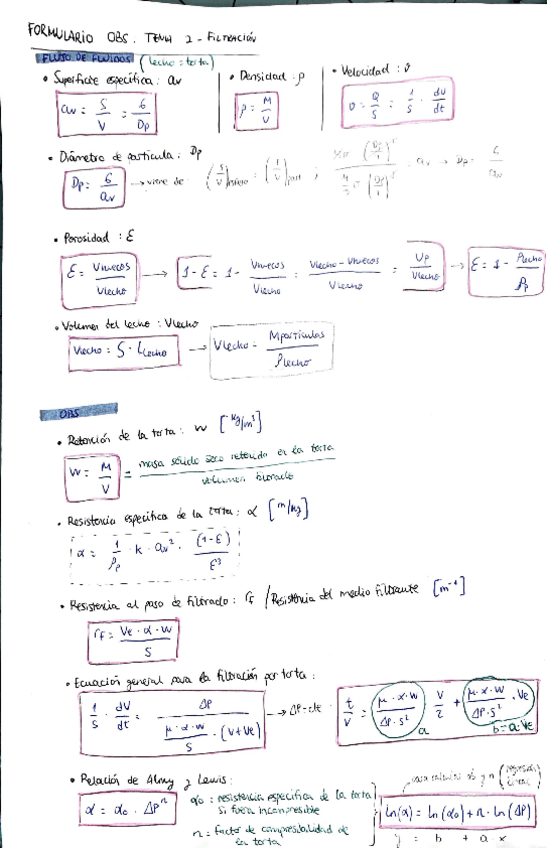 FORMULARIO OBS. TEMA 2 - FILTRACIÓN
FLUJO DE FLUIDOS (lecho = torta)
• Superficie específica: av
av = S/V = 6/Dp
• Densidad: ρ
ρ = M/V
• Velocidad: v
v = Q/S = 1/S · dV/dt
• Diámetro de partícula: Dp
Dp = 6/av → viene de (S/V)esfera = (S/V)part ; = av → Dp = 6/av
• Porosidad: ε
ε = Vhuecos/Vlecho → 1-ε = 1 - Vhuecos/Vlecho = Vlecho - Vhuecos/Vlecho = Vp/Vlecho → ε = 1 - ρlecho/ρp
• Volumen del lecho: Vlecho
Vlecho = S · Llecho → Vlecho = Mpartículas/ρlecho
OBS
• Retención de la torta: w [kg/m³]
w = M/V = masa sólido seco retenido en la torta/volumen filtrado
• Resistencia específica de la torta: α [m/kg]
α = 1/ρp · k · av² · (1-ε)/ε³
• Resistencia al paso de filtrado: rf / Resistencia del medio filtrante [m⁻¹]
rf = Ve · α · w/S
• Ecuación general para la filtración por torta:
1/S · dV/dt = ΔP/(μ·α·w/S · (V+Ve)) → ΔP=cte · t/V = (μ·α·w/ΔP·S²) V/2 + (μ·α·w/ΔP·S² · Ve)
a b = a·Ve
• Relación de Almy y Lewis:
α = α₀ · ΔPⁿ
α₀ = resistencia específica de la torta
si fuera incompresible
n = factor de compresibilidad de
la torta
para calcular α₀ y n (regresión lineal)
ln(α) = ln(α₀) + n · ln(ΔP)
y = b + a x